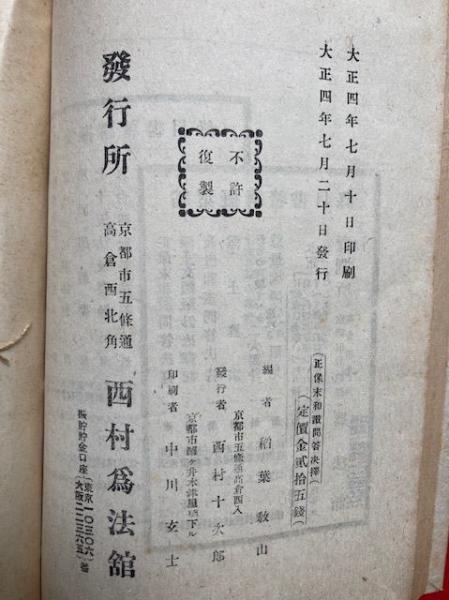 大正四年七月十日印刷
大正四年七月二十日發行
(正像末和讃問答决擇)
(定價金貳拾五錢)
不許
復製
編者 稻葉敎山
京都市五條通高倉西入
發行者 西村十次郎
印刷者 中川玄士
發行所
京都市五條通
高倉西北角
西村爲法舘
振替貯金口座(東京一〇三〇六)番
大阪二二三六五